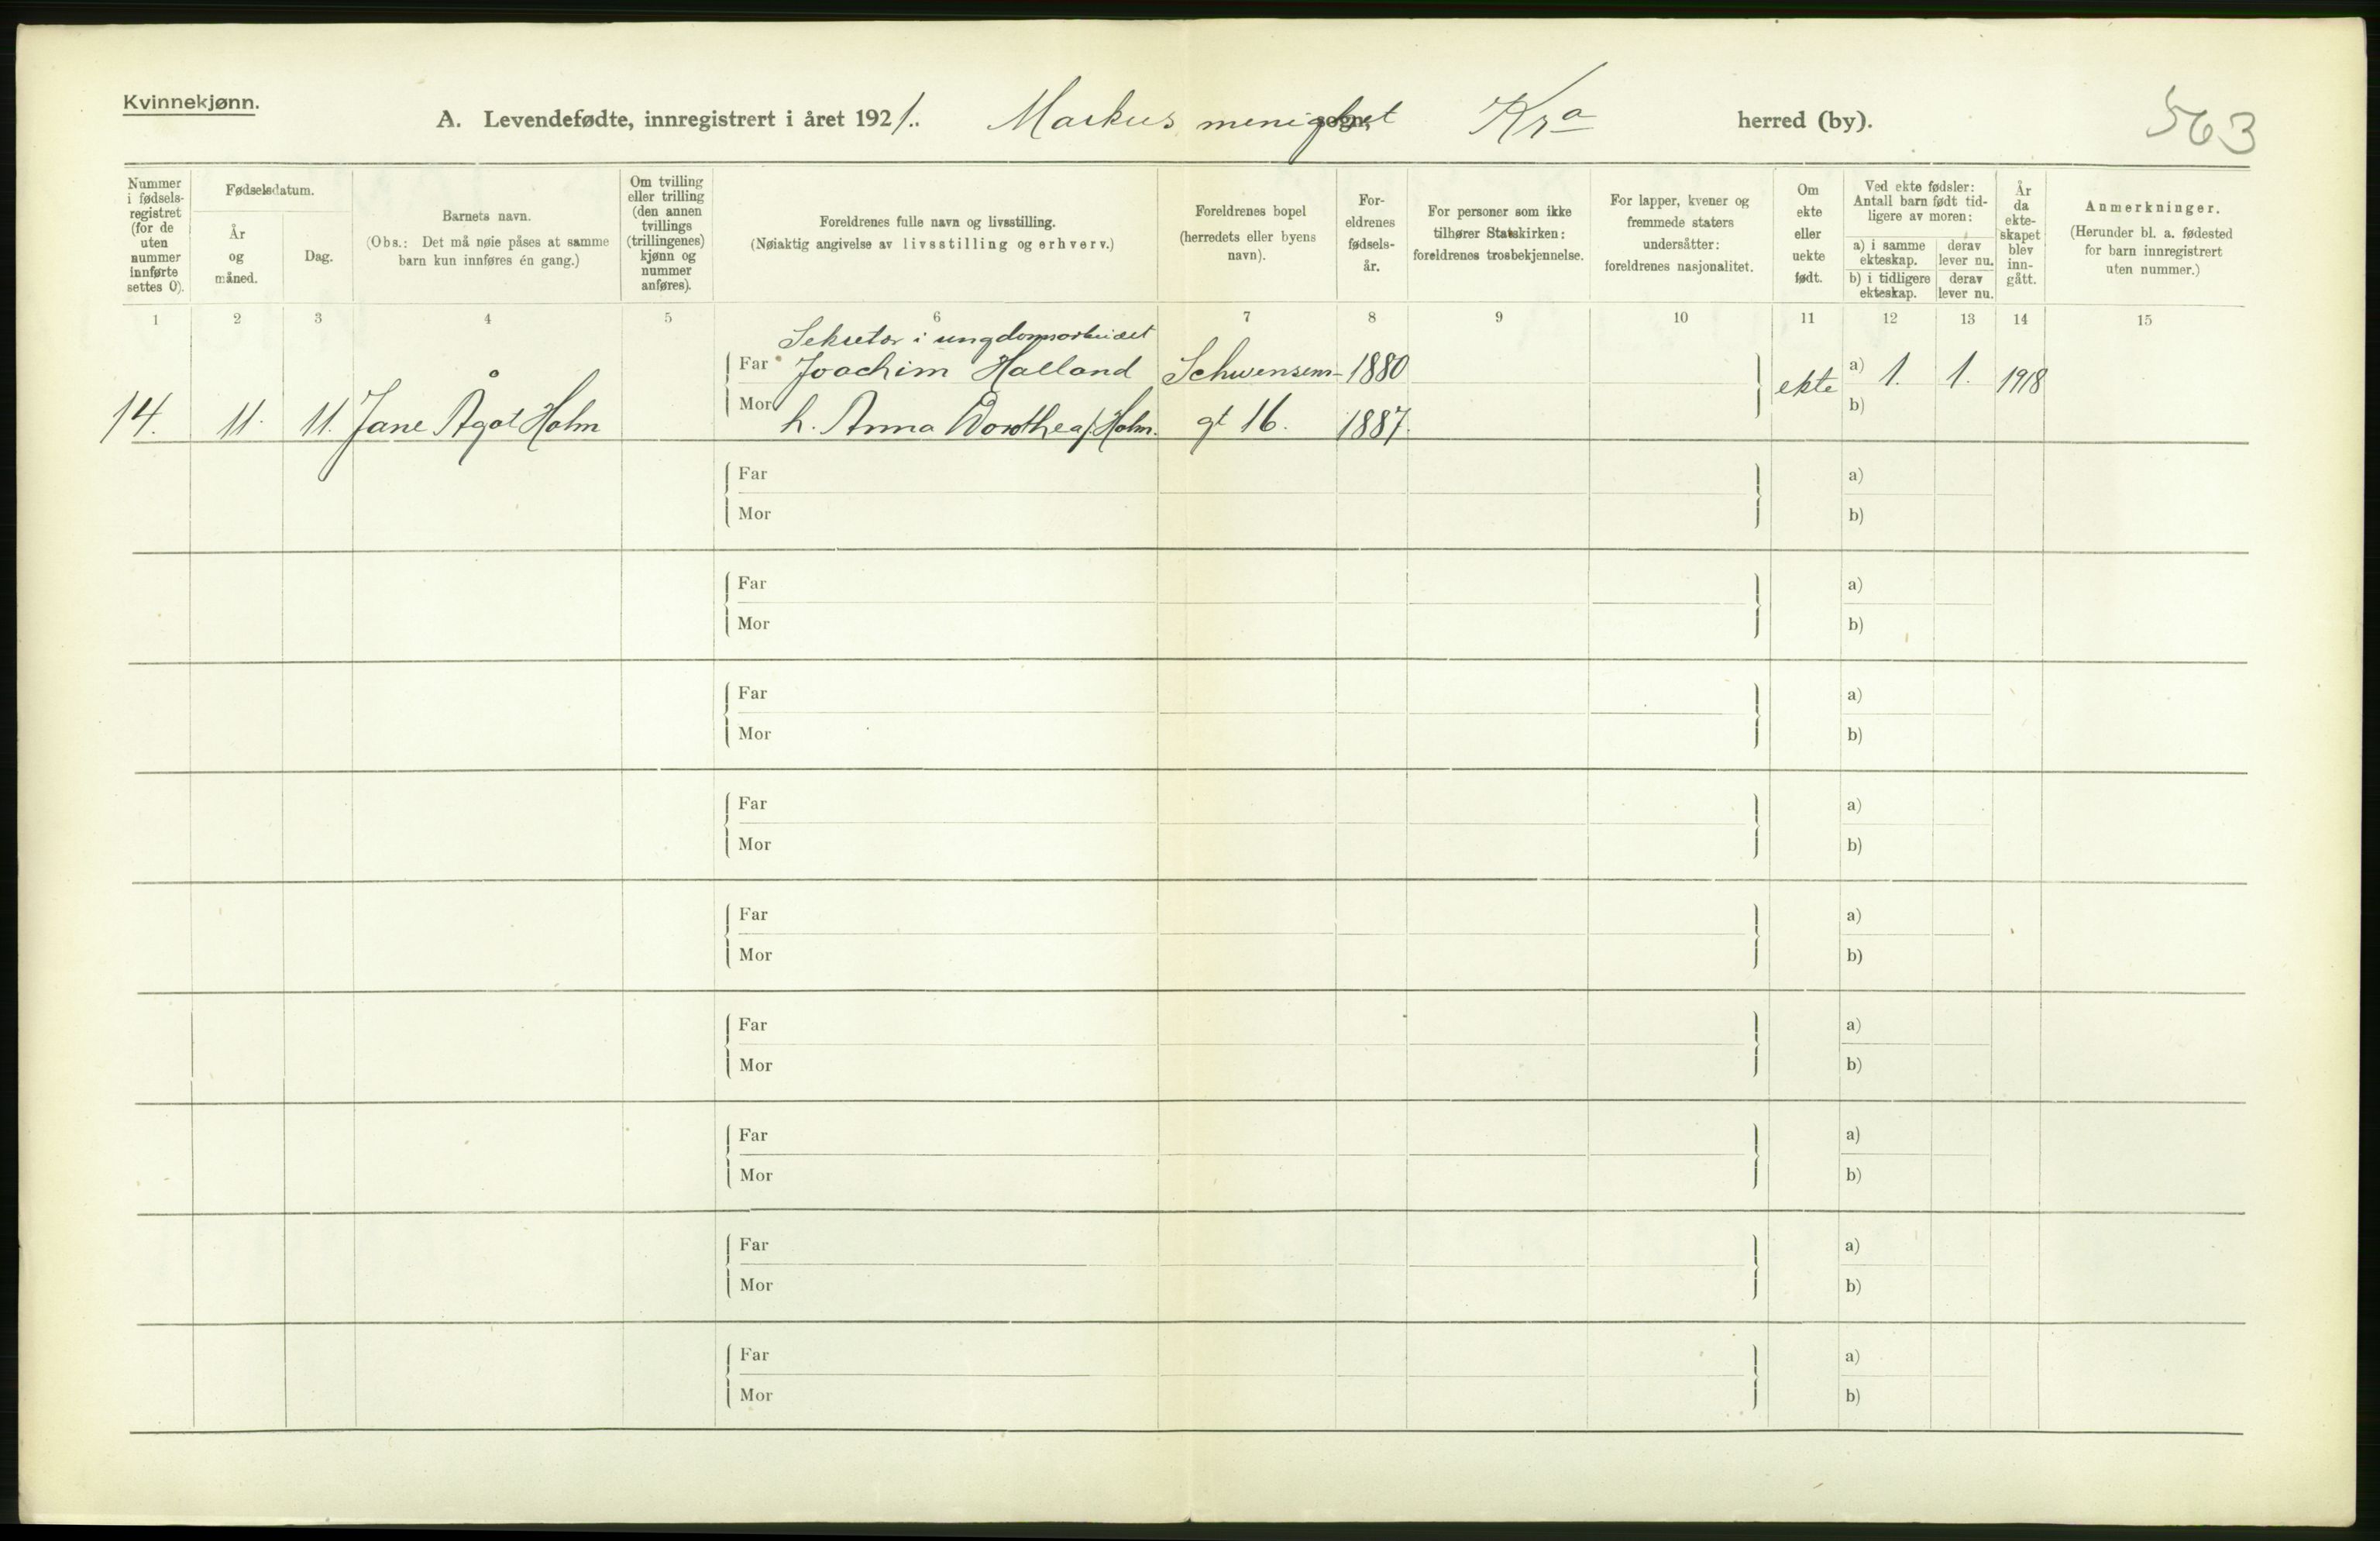 Kvinnekjønn.
A. Levendefødte, innregistrert i året 1921. Markus menighet sogn, Kra herred (by).
563
Nummer i fødsels-registret (for de uten nummer innførte settes 0).
Fødselsdatum.
År og måned.
Dag.
Barnets navn.
(Obs.: Det må nøie påses at samme barn kun innføres én gang.)
Om tvilling eller trilling (den annen tvillings (trillingenes) kjønn og nummer anføres).
Foreldrenes fulle navn og livsstilling.
(Nøiaktig angivelse av livsstilling og erhverv.)
Foreldrenes bopel (herredets eller byens navn).
For-eldrenes fødsels-år.
For personer som ikke tilhører Statskirken: foreldrenes trosbekjennelse.
For lapper, kvener og fremmede staters undersåtter: foreldrenes nasjonalitet.
Om ekte eller uekte født.
Ved ekte fødsler: Antall barn født tid-ligere av moren:
a) i samme ekteskap.
derav lever nu.
b) i tidligere ekteskap.
derav lever nu.
År da ekte-skapet blev inn-gått.
Anmerkninger.
(Herunder bl. a. fødested for barn innregistrert uten nummer.)
1 2 3 4 5 6 7 8 9 10 11 12 13 14 15
Sekretær i ungdomsarbeidet
Far Joachim Halland Schwensens- 1880 ekte a) 1. 1. 1918
14. 11. 11. Jane Ågot Holm Mor h. Anna Dorothea f. Holm. gt 16. 1887. b)
Far a)
Mor b)
Far a)
Mor b)
Far a)
Mor b)
Far a)
Mor b)
Far a)
Mor b)
Far a)
Mor b)
Far a)
Mor b)
Far a)
Mor b)
Far a)
Mor b)